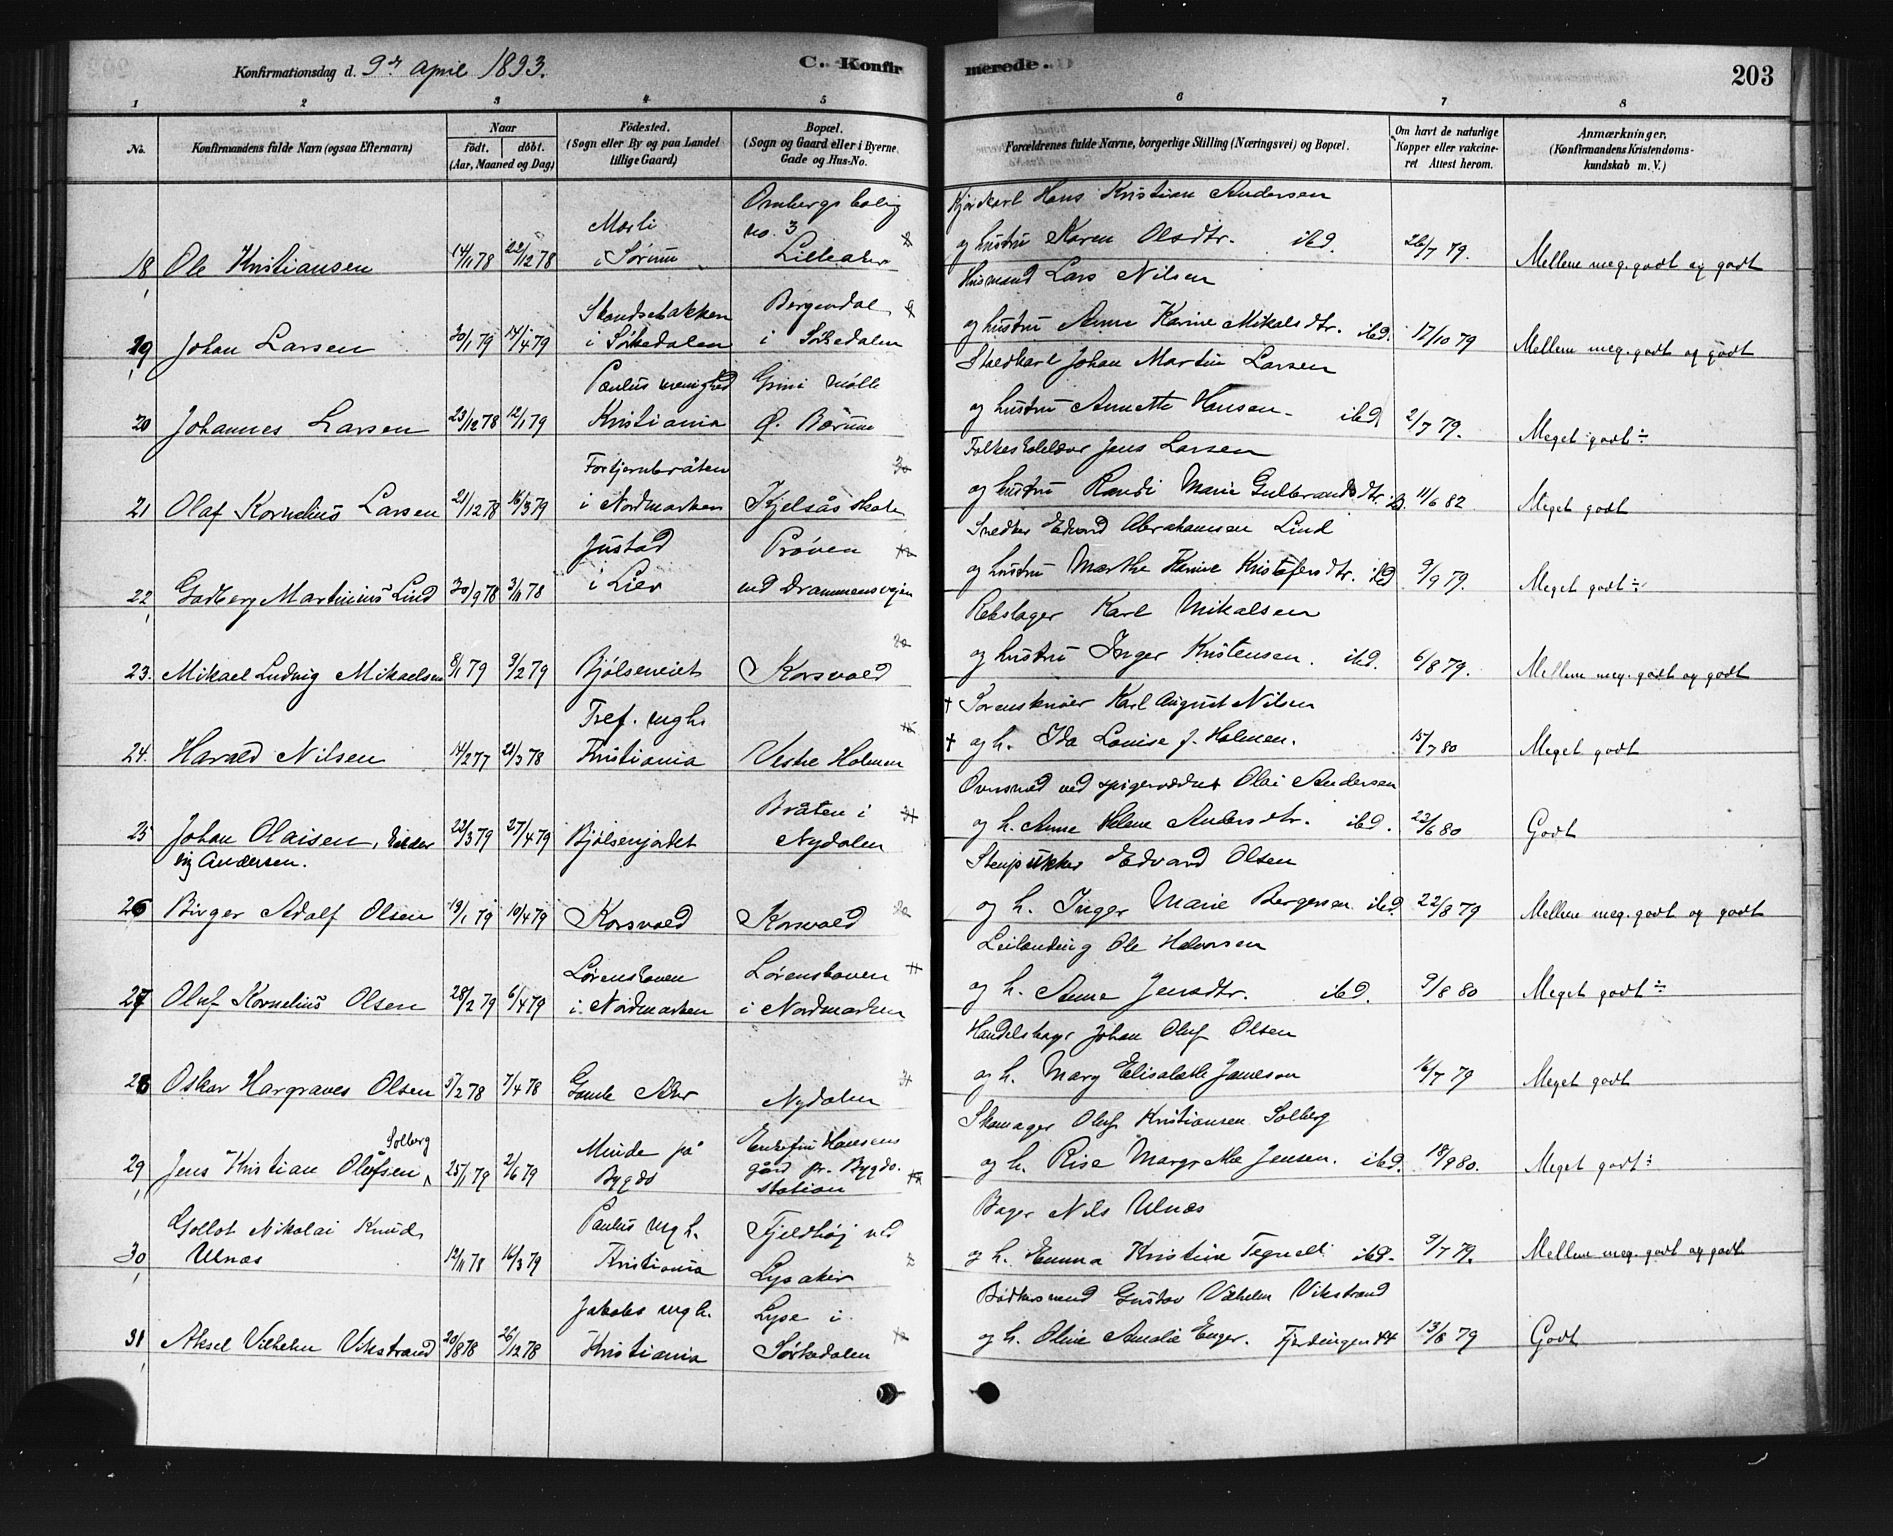 Konfirmationsdag d. 9de april 1893.
C. Konfirmerede.
203
1 2 3 4 5 6 7 8
No.
Konfirmandens fulde Navn (ogsaa Efternavn)
Naar
födt. döbt.
(Aar, Maaned og Dag)
Födested.
(Sogn eller By og paa Landet
tillige Gaard)
Bopæl.
(Sogn og Gaard eller i Byerne
Gade og Hus-No.
Forældrenes fulde Navne, borgerlige Stilling (Næringsvei) og Bopæl.
Om havt de naturlige
Kopper eller vakcineret
Attest herom.
Anmærkninger.
(Konfirmandens Kristendomskundskab
m. V.)
18 Ole Kristiansen 14/11 78 22/12 78
i Sørum
no. 3
Lilleaker
Hans Kristian Andersen
og hustru Karen Olsdtr. ibd. 26/7 79. Mellem meg. godt og godt
19 Johan Larsen 30/1 79 14/4 79
i Sørkedalen
Bergendal
i Sørkedalen
Husmand Lars Nilsen
og hustru Anne Karine Mikalsdtr. ibd. 17/10 79 Mellem meg. godt og godt
20 Johannes Larsen 23/12 78 12/1 79
Paulus menighed
Kristiania
Grini mølle
Ø. Bærum
Staldkarl Johan Martin Larsen
og hustru Annette Hansen ibd 2/7 79. Meget godt ÷
21 Olaf Kornelius Larsen 21/12 78 16/3 79
i Nordmarken
Kjelsås skole
Jens Larsen
og hustru Randi Marie Gulbrandsdtr. ib. 11/6 82 Meget godt
22 Martinius Lind 30/9 78 3/11 78
Justad
i Lier
Prøven
ved Drammensvejen
Snedker Edvard Abrahamsen Lind
og hustru Marthe Karine Kristofersdtr. ibd 9/9 79. Meget godt ÷
23. Mikael Ludvig Mikaelsen 8/1 79 9/2 79
Korsvold
Rebslager Karl Mikalsen
og hustru Inger Kristensen. ibd. 6/8 79. Mellem meg. godt og godt
24. Harald Nilsen 14/2 77 21/3 78
Tref. mgh.
Kristiania
Vestre Holmen
† Karl August Nilsen
† og h. Ida Louise f. Holmen. 15/7 80 Meget godt
25 Johan Olaisen,
Andersen. 22/3 79 27/4 79
Bjølsenjordet
Bråten i
Nydalen
Olai Andersen
og h. Anne Helene Andersdtr. ibd. 23/6 80 Godt
26 Birger Adolf Olsen 19/1 79 10/4 79
Korsvold Korsvold
Edvard Olsen
og h. Inger Marie Bergersen ibd. 22/8 79 Mellem meg. godt og godt
27 Oluf Kornelius Olsen 28/2 79 6/4 79
i Nordmarken
i Nordmarken
Leilending Ole Halvorsen
og h. Anne Jensdtr. ibd. 9/8 80 Meget godt ÷
28 Oskar Hargraves Olsen 5/2 78 7/4 78
Gamle Aker
Nydalen
Johan Oluf Olsen
og h. Mary Elisabeth Jameson 16/7 79 Meget godt
Solberg
29 Jens Kristian Olufsen 25/1 79 2/6 79
Minde på
Bygdø
Enkefru Hansens
gård pr. Bygdø
station
Skomager Oluf Kristiansen Solberg
og h. Rise Margrethe Jensen. ibd. 18/9 80. Meget godt ÷
Gollot Nikolai Knud
30 Ulnæs 19/11 78 16/3 79
Paulus mgh.
Kristiania
Fjeldhøj ved
Lysaker
Bager Nils Ulnæs
og h. Emma Kristine Tegnell ibd. 9/7 79. Mellem meg. godt og godt
31 Aksel Vilhelm Vikstrand 20/8 78 26/12 78
Jakobs mgh.
Kristiania
Lyse i
Sørkedalen
Bødkersvend Gustav Vilhelm Vikstrand
og h. Oline Amalie Enger. Fjerdingen 44 13/8 79 Godt